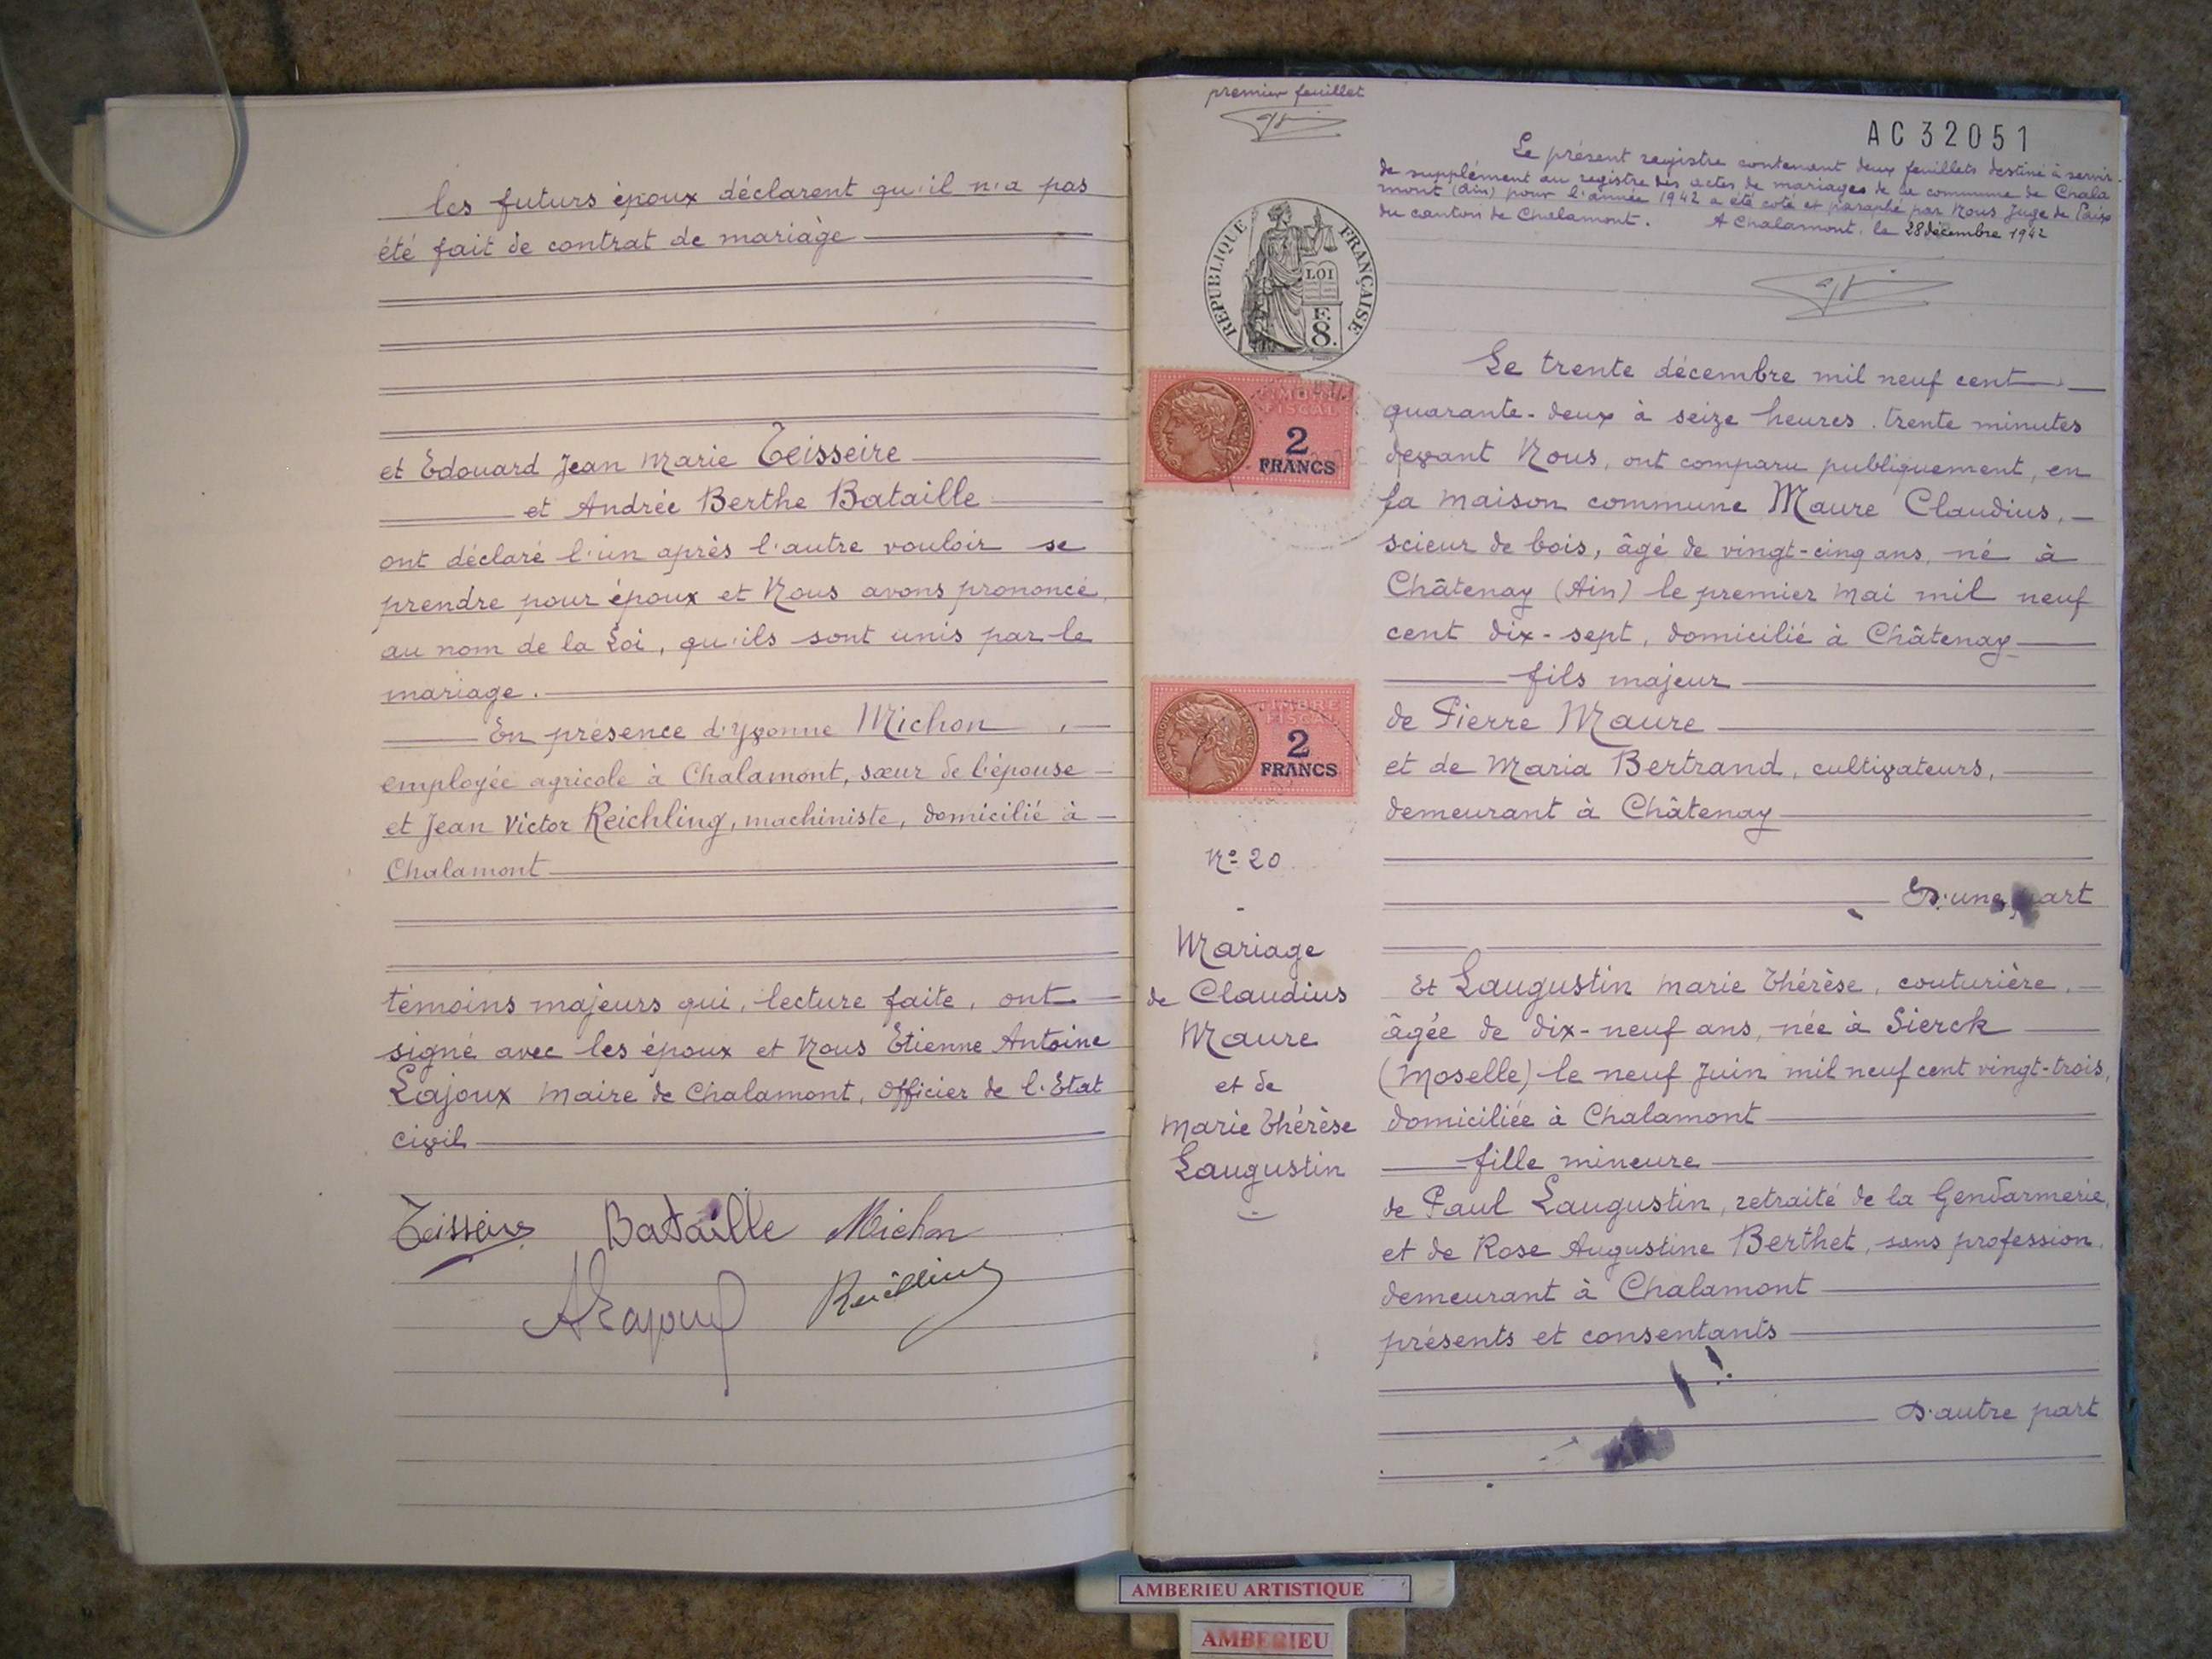 les futurs époux déclarent qu'il n'a pas
été fait de contrat de mariage
et Edouard Jean Marie Teisseire
et Andrée Berthe Bataille
ont déclaré l'un après l'autre vouloir se
prendre pour époux et Nous avons prononcé,
au nom de la Loi, qu'ils sont unis par le
mariage.
En présence d'Yvonne Michon,
employée agricole à Chalamont, sœur de l'épouse
et Jean Victor Reichling, machiniste, domicilié à
Chalamont
témoins majeurs qui, lecture faite, ont
signé avec les époux et Nous Etienne Antoine
Lajoux Maire de Chalamont, Officier de l'Etat
civil
Teisseire Bataille Michon
ALajoux Reichling
premier feuillet
AC32051
Le présent registre contenant deux feuillets destiné à servir
de supplément au registre des actes de mariages de la commune de Chala
mont (Ain) pour l'année 1942 a été coté et paraphé par Nous Juge de Paix
du canton de Chalamont. A Chalamont, le 28 décembre 1942
REPUBLIQUE FRANÇAISE
LOI
F.
8.
TIMBRE
FISCAL
2
FRANCS
TIMBRE
FISCAL
2
FRANCS
N° 20
Mariage
de Claudius
Maure
et de
Marie Thérèse
Laugustin
Le trente décembre mil neuf cent
quarante-deux à seize heures trente minutes
devant Nous, ont comparu publiquement, en
la maison commune Maure Claudius,
scieur de bois, âgé de vingt-cinq ans, né à
Châtenay (Ain) le premier Mai mil neuf
cent dix-sept, domicilié à Châtenay
fils majeur
de Pierre Maure
et de Maria Bertrand, cultivateurs,
demeurant à Châtenay
D'une part
Et Laugustin Marie Thérèse, couturière,
âgée de dix-neuf ans, née à Sierck
(Moselle) le neuf Juin mil neuf cent vingt-trois,
domiciliée à Chalamont
fille mineure
de Paul Laugustin, retraité de la Gendarmerie,
et de Rose Augustine Berthet, sans profession,
demeurant à Chalamont
présents et consentants
D'autre part
AMBERIEU ARTISTIQUE
AMBERIEU